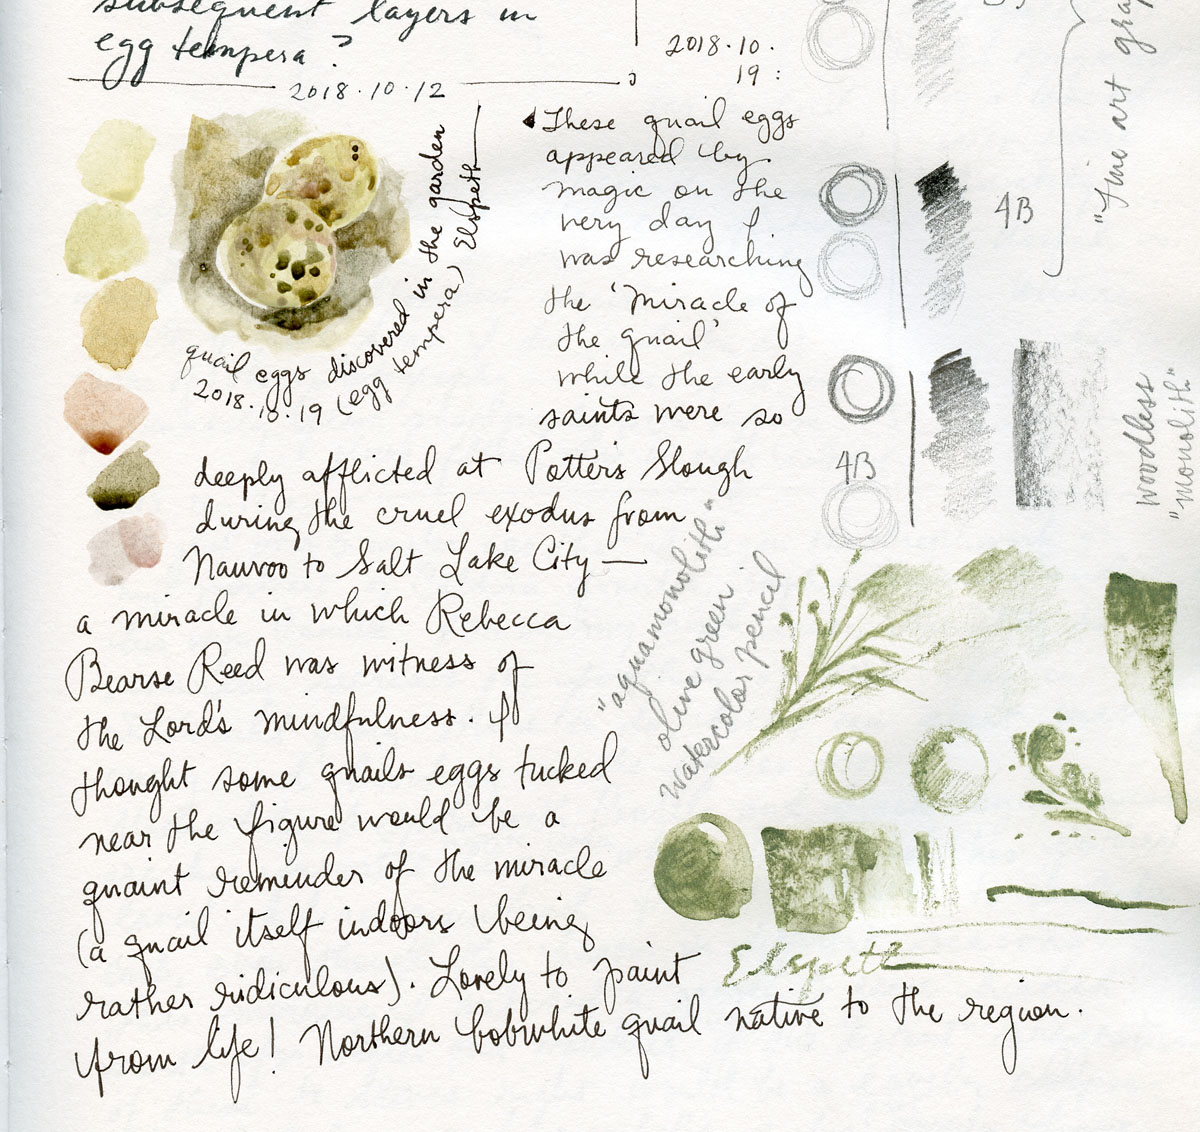 subsequent layers in
egg tempera?
2018.10.12
quail eggs discovered in the garden
2018.10.19 (egg tempera) Elspeth
2018.10.
19:
These quail eggs
appeared by
magic on the
very day I
was researching
the 'miracle of
the quail'
while the early
saints were so
deeply afflicted at Potter's Slough
during the cruel exodus from
Nauvoo to Salt Lake City —
a miracle in which Rebecca
Bearse Reed was witness of
the Lord's mindfulness. I
thought some quails eggs tucked
near the figure would be a
quaint reminder of the miracle
(a quail itself indoors being
rather ridiculous). Lovely to paint
from life! Northern bobwhite quail native to the region.
4B
"Fine art gra
4B
woodless
"monolith"
"aquamonolith"
olive green
watercolor pencil
Elspeth